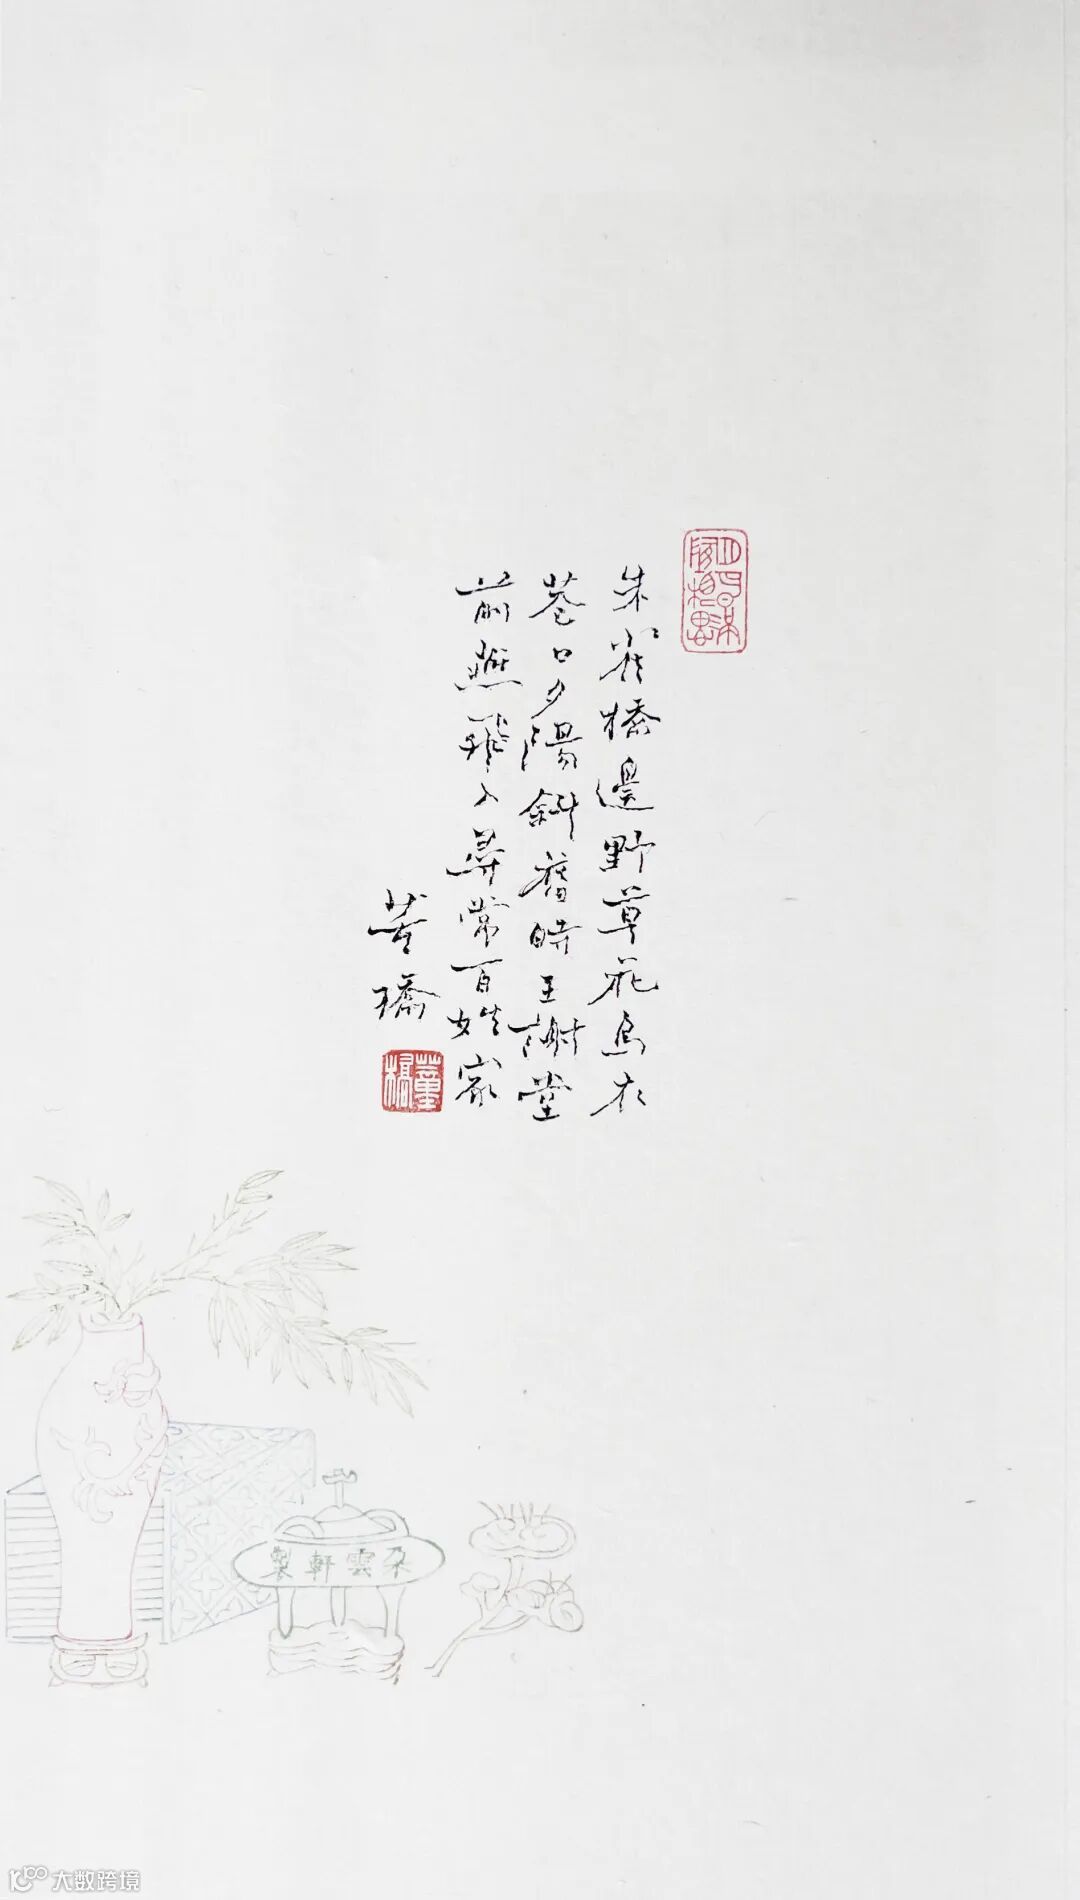 朱雀橋邊野草花烏衣
巷口夕陽斜舊時王謝堂
前燕飛入尋常百姓家
董橋
董橋
朵雲軒製
大数跨境